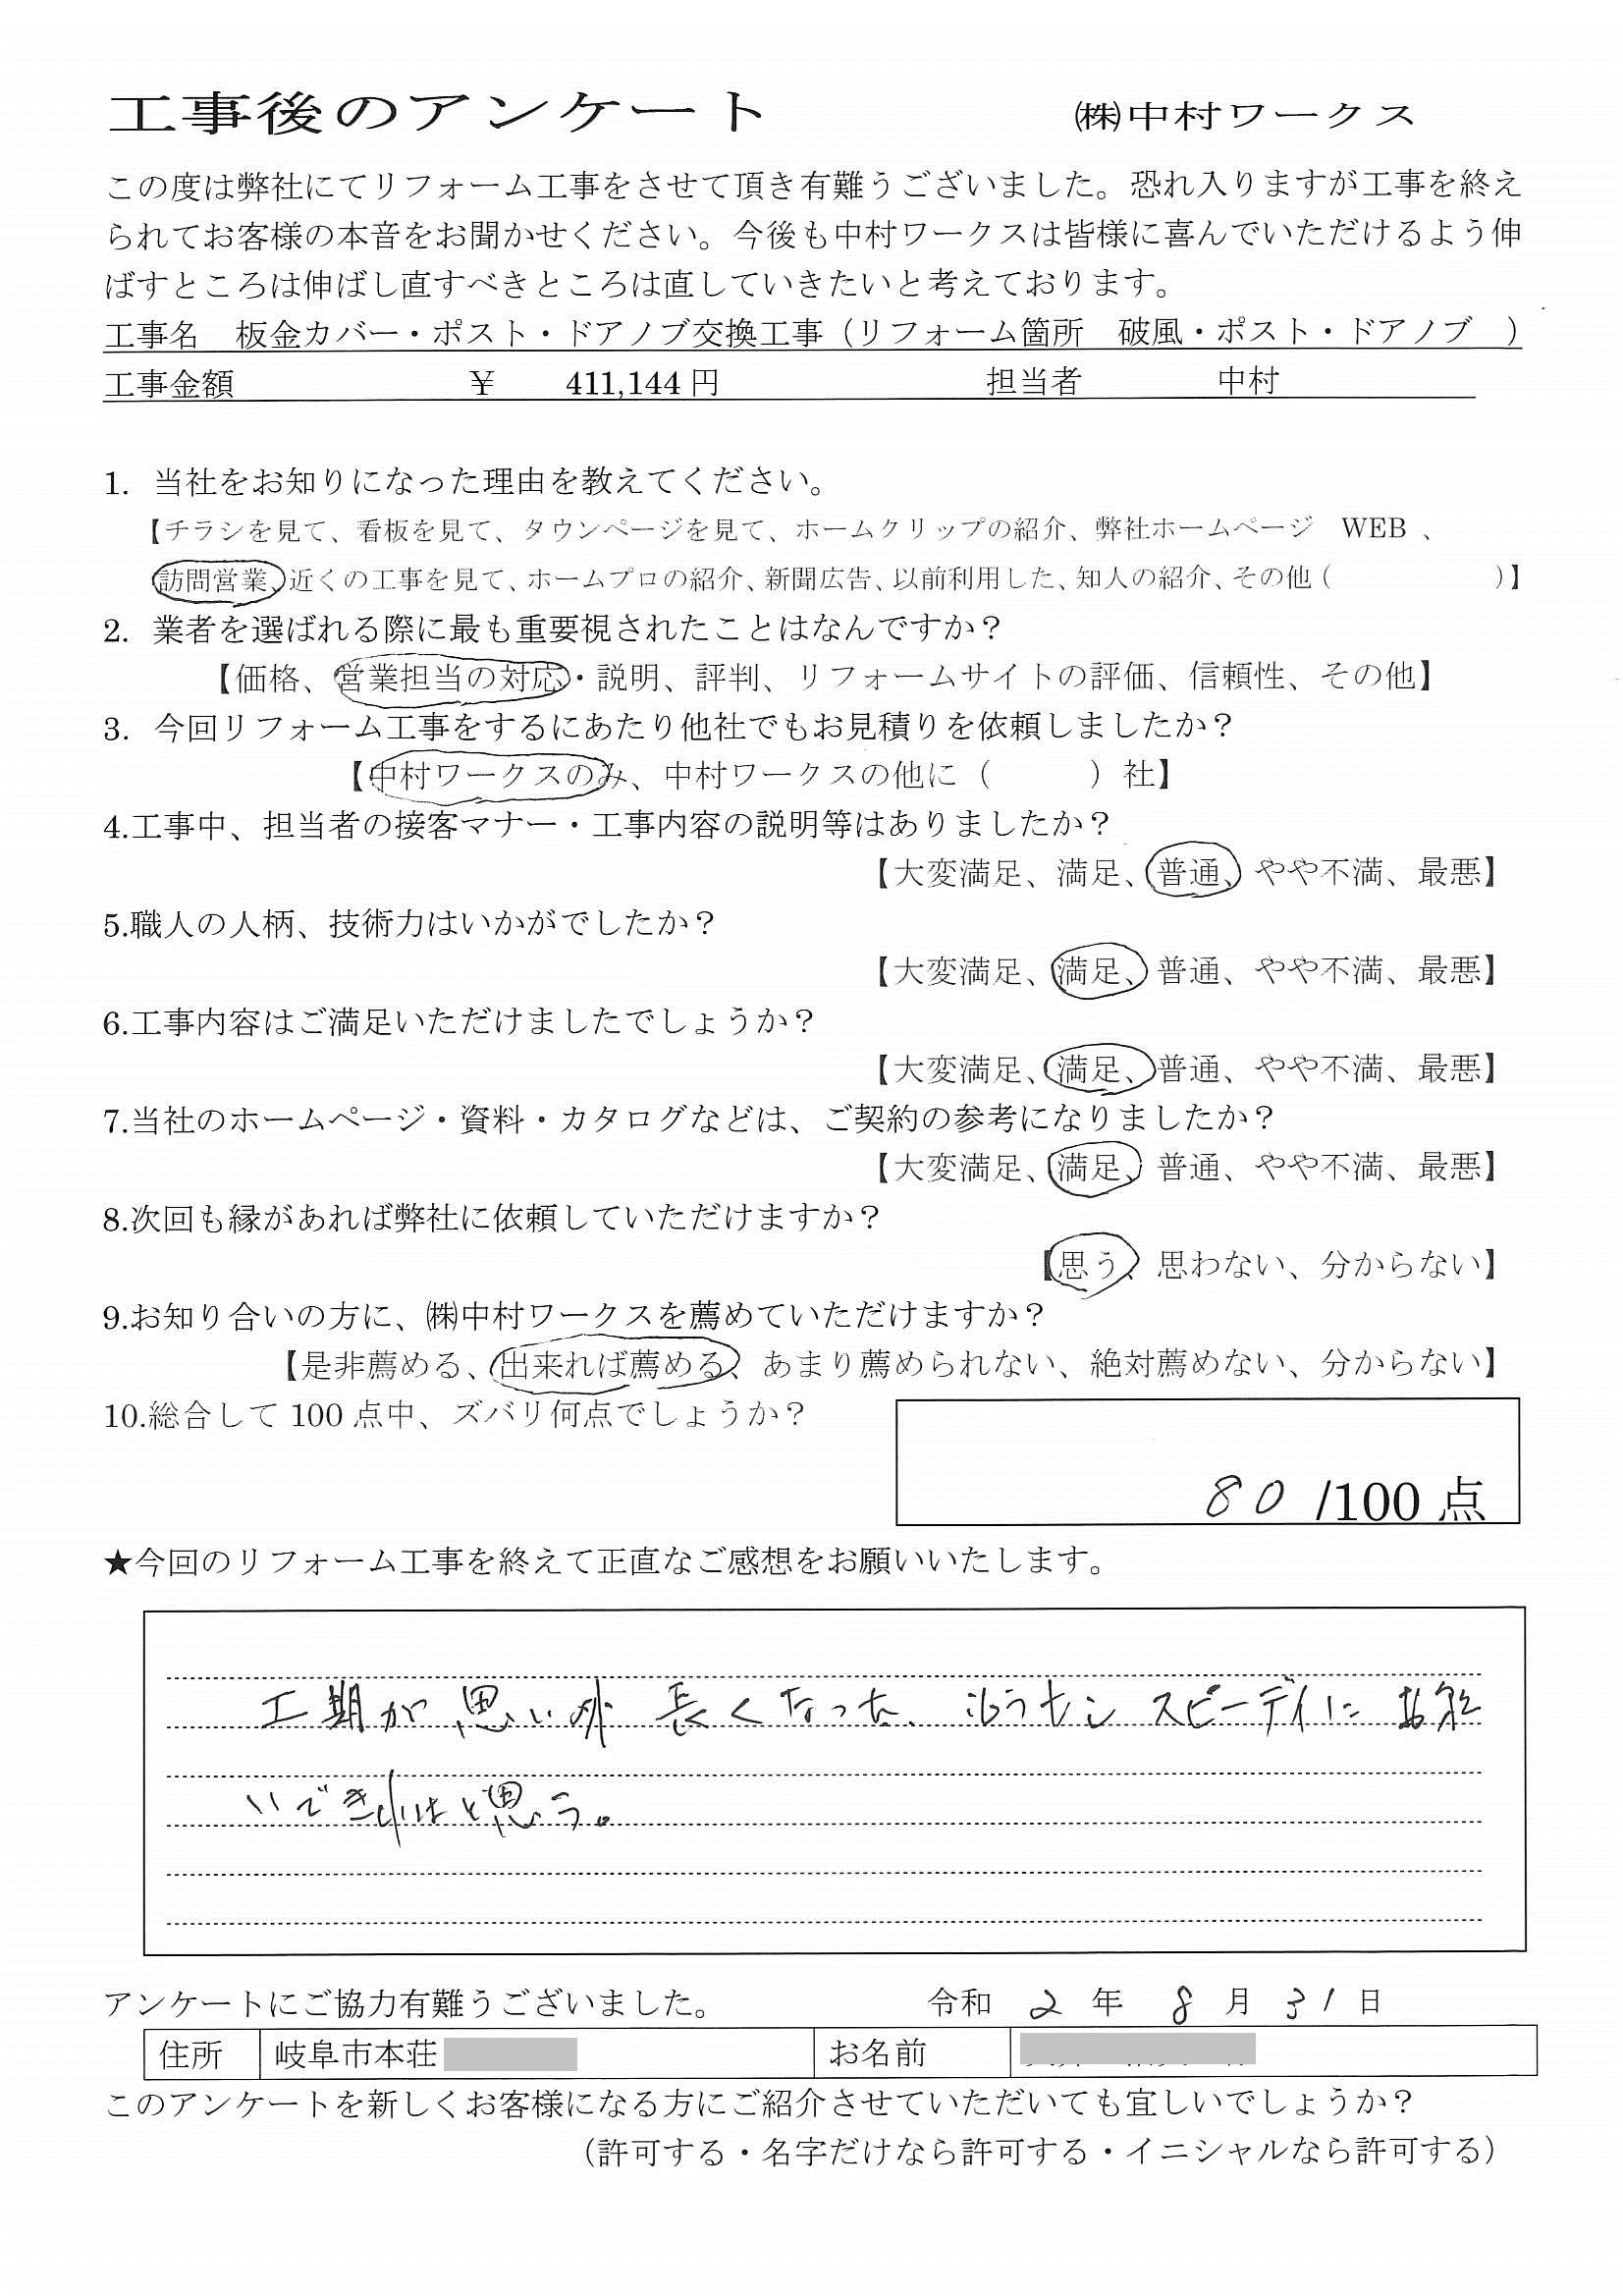 工事後のアンケート ㈱中村ワークス
この度は弊社にてリフォーム工事をさせて頂き有難うございました。恐れ入りますが工事を終え
られてお客様の本音をお聞かせください。今後も中村ワークスは皆様に喜んでいただけるよう伸
ばすところは伸ばし直すべきところは直していきたいと考えております。
工事名 板金カバー・ポスト・ドアノブ交換工事（リフォーム箇所 破風・ポスト・ドアノブ ）
工事金額 ￥ 411,144 円 担当者 中村
1. 当社をお知りになった理由を教えてください。
【チラシを見て、看板を見て、タウンページを見て、ホームクリップの紹介、弊社ホームページ WEB 、
訪問営業、近くの工事を見て、ホームプロの紹介、新聞広告、以前利用した、知人の紹介、その他（ ）】
2. 業者を選ばれる際に最も重要視されたことはなんですか？
【価格、営業担当の対応・説明、評判、リフォームサイトの評価、信頼性、その他】
3. 今回リフォーム工事をするにあたり他社でもお見積りを依頼しましたか？
【中村ワークスのみ、中村ワークスの他に（ ）社】
4.工事中、担当者の接客マナー・工事内容の説明等はありましたか？
【大変満足、満足、普通、やや不満、最悪】
5.職人の人柄、技術力はいかがでしたか？
【大変満足、満足、普通、やや不満、最悪】
6.工事内容はご満足いただけましたでしょうか？
【大変満足、満足、普通、やや不満、最悪】
7.当社のホームページ・資料・カタログなどは、ご契約の参考になりましたか？
【大変満足、満足、普通、やや不満、最悪】
8.次回も縁があれば弊社に依頼していただけますか？
【思う、思わない、分からない】
9.お知り合いの方に、㈱中村ワークスを薦めていただけますか？
【是非薦める、出来れば薦める、あまり薦められない、絶対薦めない、分からない】
10.総合して 100 点中、ズバリ何点でしょうか？
80 /100 点
★今回のリフォーム工事を終えて正直なご感想をお願いいたします。
工期が思い外長くなった、もう少しスピーディに お願
いできればと思う。
アンケートにご協力有難うございました。 令和 2 年 8 月 31 日
住所 岐阜市本荘 お名前
このアンケートを新しくお客様になる方にご紹介させていただいても宜しいでしょうか？
（許可する・名字だけなら許可する・イニシャルなら許可する）